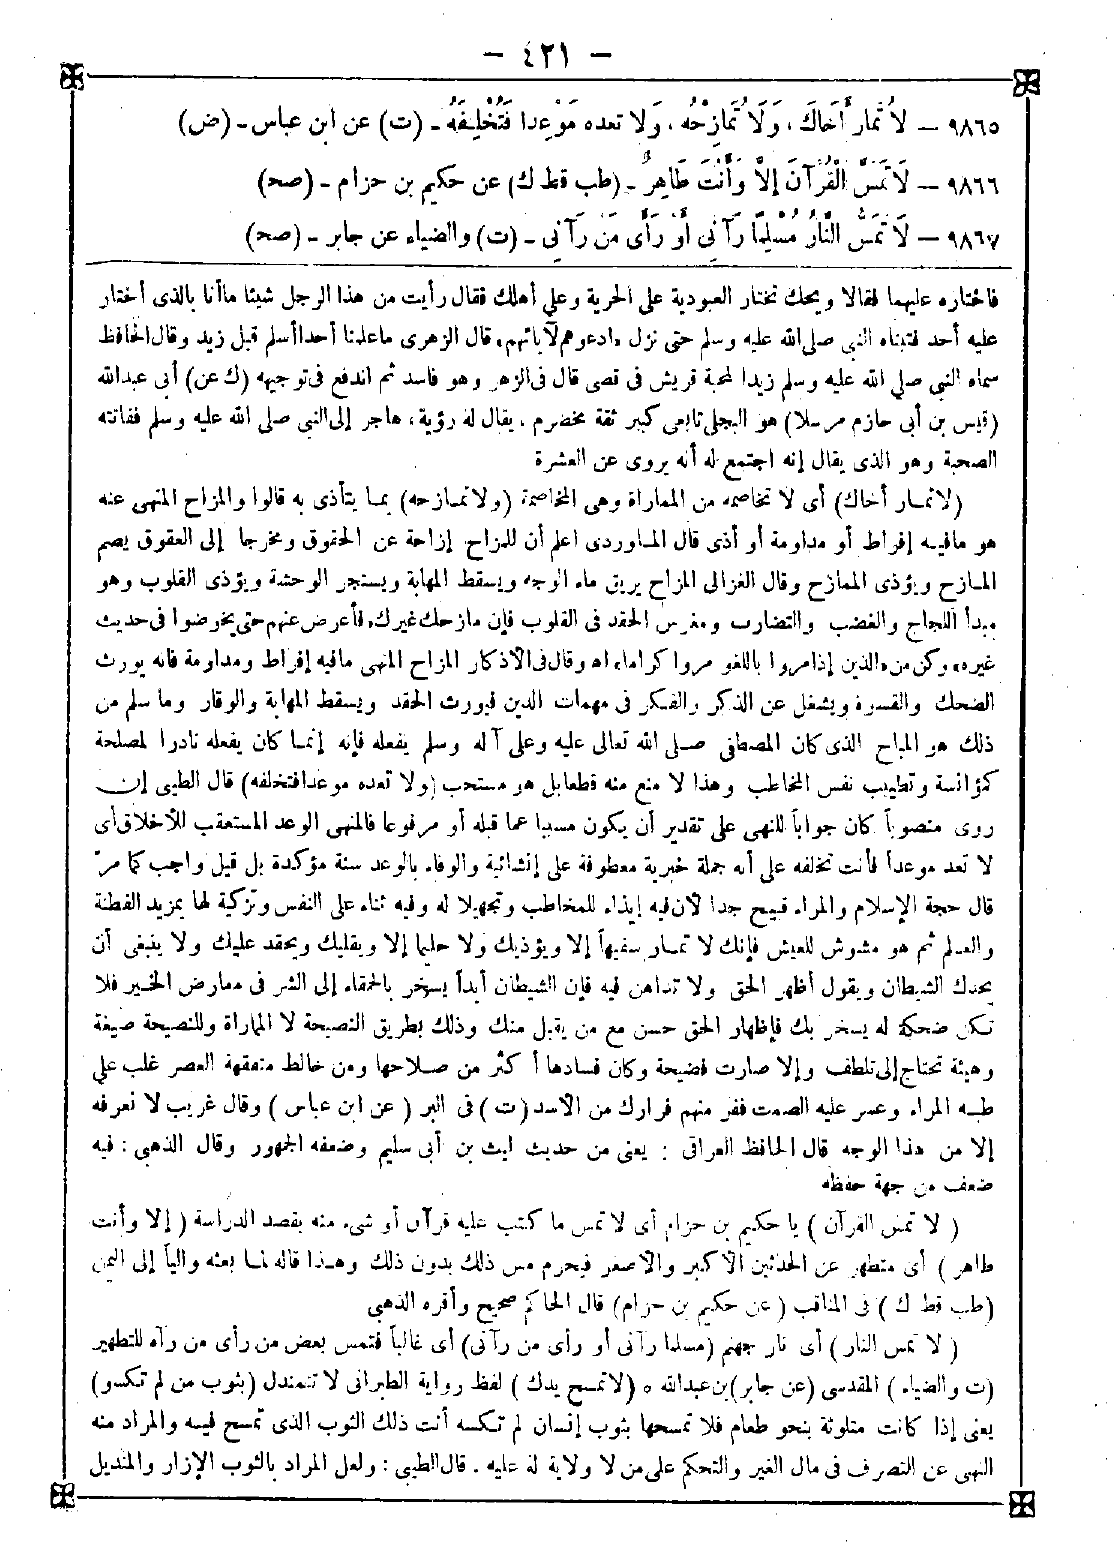 – ٤٢١ –
٩٨٦٥ – لاَ تُمَارِ أَخَاكَ، وَلَا تُمَازِحْهُ، وَلا تعده مَوْعِدا فَتُخْلِفَهُ - (ت) عن ابن عباس - (ض)
٩٨٦٦ – لَا تَمَسَّ الْقُرْآنَ إِلَّا وَأَنْتَ طَاهِرٌ - (طب قط ك) عن حكيم بن حزام - (صح)
٩٨٦٧ – لَا تَمَسُّ النَّارُ مُسْلِمًا رَآنِي أَوْ رَأَى مَنْ رَآنِي - (ت) والضياء عن جابر - (صح)
فاختاره عليهما فقالا ويحك تختار العبودية على الحرية وعلى أهلك فقال رأيت من هذا الرجل شيئا ماأنا بالذى أختار
عليه أحد فتبناه النبى صلى الله عليه وسلم حتى نزل «ادعوهم لآبائهم» قال الزهرى ماعلمنا أحدا أسلم قبل زيد وقال الحافظ
سماه النبى صلى الله عليه وسلم زيدا لمحبة قريش فى قصى قال فى الزهر وهو فاسد ثم اندفع فى توجيهه (ك عن) أبى عبدالله
(قيس بن أبى حازم مرسلا) هو البجلى تابعى كبير ثقة مخضرم، يقال له رؤية، هاجر إلى النبى صلى الله عليه وسلم ففاتته
الصحبة وهو الذى يقال إنه اجتمع له أنه يروى عن العشرة
(لاتمار أخاك) أى لا تخاصمه من المماراة وهى المخاصمة (ولا تمازحه) بما يتأذى به قالوا والمزاح المنهى عنه
هو مافيه إفراط أو مداومة أو أذى قال الماوردى اعلم أن للمزاح إزاحة عن الحقوق ومخرجا إلى العقوق يصم
المازح ويؤذى الممازح وقال الغزالى المزاح يريق ماء الوجه ويسقط المهابة ويستجر الوحشة ويؤذى القلوب وهو
مبدأ اللجاج والغضب والتضارب ومغرس الحقد فى القلوب فإن مازحك غيرك «فأعرض عنهم حتى يخوضوا فى حديث
غيره» وكن من «الذين إذا مروا باللغو مروا كراما» اه وقال فى الأذكار المزاح المنهى مافيه إفراط ومداومة فانه يورث
الضحك والقسوة ويشغل عن الذكر والفكر فى مهمات الدين فيورث الحقد ويسقط المهابة والوقار وما سلم من
ذلك هو المباح الذى كان المصطفى صلى الله تعالى عليه وعلى آله وسلم يفعله فإنه إنما كان يفعله نادرا لمصلحة
كمؤانسة وتطييب نفس المخاطب وهذا لا منع منه قطعا بل هو مستحب (ولا تعده موعدا فتخلفه) قال الطيبى إن
روى منصوباً كان جواباً للنهى على تقدير أن يكون مسببا عما قبله أو مرفوعا فالمنهى الوعد المستعقب للأخلاق أى
لا تعد موعداً فأنت تخلفه على أنه جملة خبرية معطوفة على إنشائية والوفاء بالوعد سنة مؤكدة بل قيل واجب كما مرّ
قال حجة الإسلام والمراء قبيح جدا لأن فيه إيذاء للمخاطب وتجهيلا له وفيه ثناء على النفس وتزكية لها بمزيد الفطنة
والعلم ثم هو مشوش للعيش فإنك لا تمار سفيهاً إلا ويؤذيك ولا حليما إلا ويقليك ويحقد عليك ولا ينبغى أن
يخدك الشيطان ويقول أظهر الحق ولا تداهن فيه فإن الشيطان أبداً يسخر بالحمقاء إلى الشر فى معارض الخير فلا
تكن ضحكة له يسخر بك فإظهار الحق حسن مع من يقبل منك وذلك بطريق النصيحة لا المماراة وللنصيحة صيغة
وهيئة تحتاج إلى تلطف وإلا صارت فضيحة وكان فسادها أكثر من صلاحها ومن خالط متفقهة العصر غلب على
طبعه المراء وعسر عليه الصمت ففر منهم فرارك من الأسد (ت) فى البر (عن ابن عباس) وقال غريب لا نعرفه
إلا من هذا الوجه قال الحافظ العراقى : يعنى من حديث ليث بن أبى سليم وضعفه الجمهور وقال الذهبى : فيه
ضعف من جهة حفظه
(لا تمس القرآن) يا حكيم بن حزام أى لا تمس ما كتب عليه قرآن أو شىء منه بقصد الدراسة (إلا وأنت
طاهر) أى متطهر عن الحدثين الأكبر والأصغر فيحرم مس ذلك بدون ذلك وهذا قاله لما بعثه والياً إلى اليمن
(طب قط ك) فى المناقب (عن حكيم بن حزام) قال الحاكم صحيح وأقره الذهبى
(لا تمس النار) أى نار جهنم (مسلما رآنى أو رأى من رآنى) أى غالباً فتمس بعض من رأى من رآه للتطهير
(ت والضياء) المقدسى (عن جابر) بن عبدالله ه (لا تمسح يدك) لفظ رواية الطبرانى لا تتمندل (بثوب من لم تكسو)
يعنى إذا كانت متلوثة بنحو طعام فلا تمسحها بثوب إنسان لم تكسه أنت ذلك الثوب الذى تمسح فيه والمراد منه
النهى عن التصرف فى مال الغير والتحكم على من لا ولاية له عليه . قال الطيبى : ولعل المراد بالثوب الإزار والمنديل